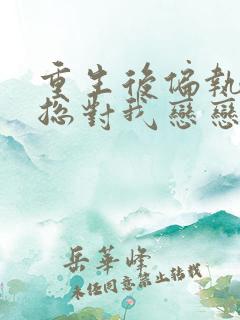 重生後偏執
總對我戀戀
岳華峰
未經同意禁止轉載